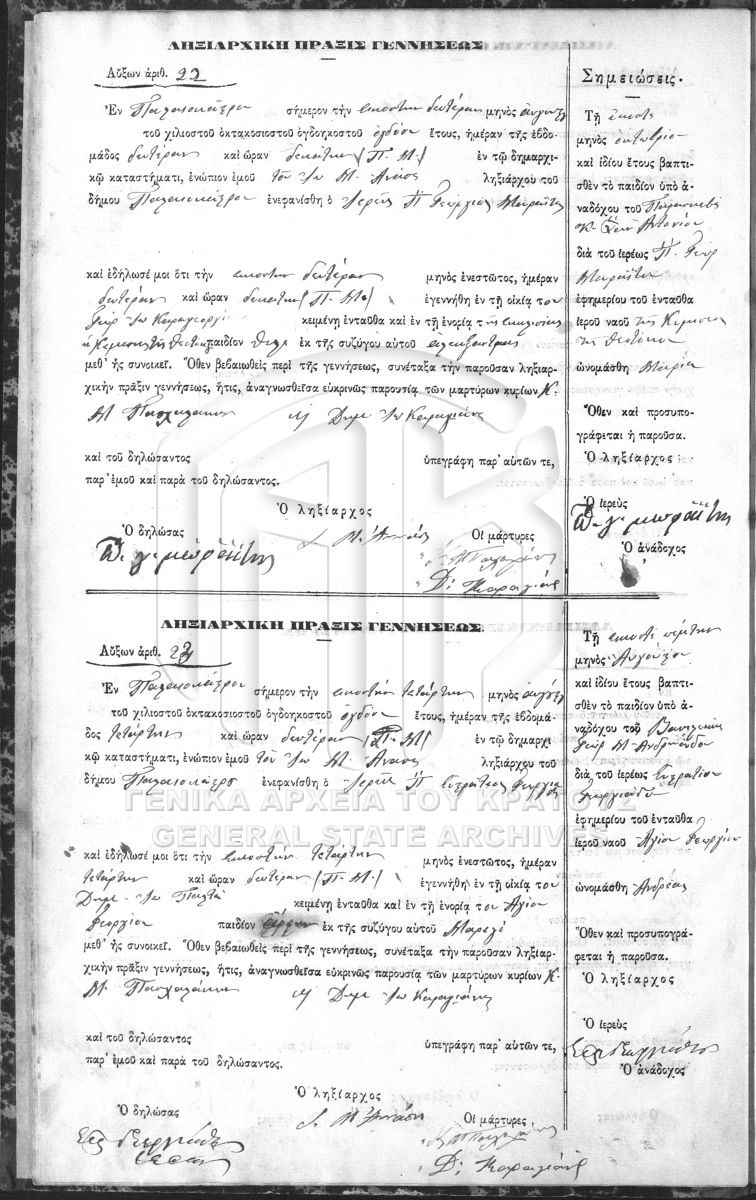 ΛΗΞΙΑΡΧΙΚΗ ΠΡΑΞΙΣ ΓΕΝΝΗΣΕΩΣ
Αὔξων ἀριθ. 22
Ἐν Παλαιοκάστρο σήμερον τὴν εικοστην δευτέραν μηνὸς
τοῦ χιλιοστοῦ ὀκτακοσιοστοῦ ὀγδοηκοστοῦ ὀγδόου ἔτους, ἡμέραν τῆς ἑβδο-
μάδος δευτέραν καὶ ὥραν δεκάτην (Π. Μ.) ἐν τῷ δημαρχι-
κῷ καταστήματι, ἐνώπιον ἐμοῦ τοῦ Ιω Μ. ληξιάρχου τοῦ
δήμου Παλαιοκάστρο ἐνεφανίσθη ὁ Ιερεὺς Π Γεώργιος
καὶ ἐδήλωσέ μοι ὅτι τὴν εικοστην δευτέραν μηνὸς ἐνεστῶτος, ἡμέραν
δευτέραν καὶ ὥραν δεκάτην (Π. Μ.) ἐγεννήθη ἐν τῇ οἰκίᾳ του
Γεωρ Ιω Καραγεωργίου κειμένῃ ἐνταῦθα καὶ ἐν τῇ ἐνορίᾳ της εκκλησίας
παιδίον θηλ ἐκ τῆς συζύγου αὐτοῦ
μεθ' ἧς συνοικεῖ. Ὅθεν βεβαιωθεὶς περὶ τῆς γεννήσεως, συνέταξα τὴν παροῦσαν ληξιαρ-
χικὴν πρᾶξιν γεννήσεως, ἥτις, ἀναγνωσθεῖσα εὐκρινῶς παρουσίᾳ τῶν μαρτύρων κυρίων Κ.
Μ Δημ Ιω Καραγιάνη
καὶ τοῦ δηλώσαντος ὑπεγράφη παρ' αὐτῶν τε,
παρ' ἐμοῦ καὶ παρὰ τοῦ δηλώσαντος.
Ὁ ληξίαρχος
Ὁ δηλώσας Οἱ μάρτυρες
Δ: Καραγιάνη
Σημειώσεις.
Τῇ εικοστη
μηνὸς οκτωβριο
καὶ ἰδίου ἔτους βαπτι-
σθὲν τὸ παιδίον ὑπὸ ἀ-
ναδόχου τοῦ Παρασκευῆς
Αντωνίου
διὰ τοῦ ἱερέως Π. Γεωρ
ἐφημερίου τοῦ ἐνταῦθα
ἱεροῦ ναοῦ της Κημισεως
της θεοτόκου
ὠνομάσθη Μαρία
Ὅθεν καὶ προσυπο-
γράφεται ἡ παροῦσα.
Ὁ ληξίαρχος
Ὁ ἱερεὺς
Ὁ ἀνάδοχος
ΛΗΞΙΑΡΧΙΚΗ ΠΡΑΞΙΣ ΓΕΝΝΗΣΕΩΣ
Αὔξων ἀριθ. 23
Ἐν Παλαιοκάστρο σήμερον τὴν εικοστην τετάρτην μηνὸς
τοῦ χιλιοστοῦ ὀκτακοσιοστοῦ ὀγδοηκοστοῦ ὀγδόου ἔτους, ἡμέραν τῆς ἑβδομά-
δος τετάρτην καὶ ὥραν δευτέραν (Π. Μ) ἐν τῷ δημαρχι-
κῷ καταστήματι, ἐνώπιον ἐμοῦ τοῦ Ιω Μ. ληξιάρχου τοῦ
δήμου Παλαιοκάστρο ἐνεφανίσθη ὁ Ιερεὺς Π Ευστράτιος
ΓΕΝΙΚΑ ΑΡΧΕΙΑ ΤΟΥ ΚΡΑΤΟΥΣ
GENERAL STATE ARCHIVES
καὶ ἐδήλωσέ μοι ὅτι τὴν εικοστην τετάρτην μηνὸς ἐνεστῶτος, ἡμέραν
τετάρτην καὶ ὥραν δευτέραν (Π. Μ.) ἐγεννήθη ἐν τῇ οἰκίᾳ του
Δημ Ιω κειμένῃ ἐνταῦθα καὶ ἐν τῇ ἐνορίᾳ του Αγίου
Γεωργίου παιδίον ἐκ τῆς συζύγου αὐτοῦ
μεθ' ἧς συνοικεῖ. Ὅθεν βεβαιωθεὶς περὶ τῆς γεννήσεως, συνέταξα τὴν παροῦσαν ληξιαρ-
χικὴν πρᾶξιν γεννήσεως, ἥτις, ἀναγνωσθεῖσα εὐκρινῶς παρουσίᾳ τῶν μαρτύρων κυρίων Κ.
Μ. Δημ Ιω Καραγιάνη
καὶ τοῦ δηλώσαντος ὑπεγράφη παρ' αὐτῶν τε,
παρ' ἐμοῦ καὶ παρὰ τοῦ δηλώσαντος.
Ὁ ληξίαρχος
Ὁ δηλώσας Οἱ μάρτυρες
Δ: Καραγιάνη
Τῇ εικοστη πέμπτην
μηνὸς
καὶ ἰδίου ἔτους βαπτι-
σθὲν τὸ παιδίον ὑπὸ ἀ-
ναδόχου τοῦ
Γεωρ Μ.
διὰ τοῦ ἱερέως Ευστρατίου
ἐφημερίου τοῦ ἐνταῦθα
ἱεροῦ ναοῦ Αγίου Γεωργίου
ὠνομάσθη Ανδρέας
Ὅθεν καὶ προσυπογρά-
φεται ἡ παροῦσα.
Ὁ ληξίαρχος
Ὁ ἱερεὺς
Ὁ ἀνάδοχος